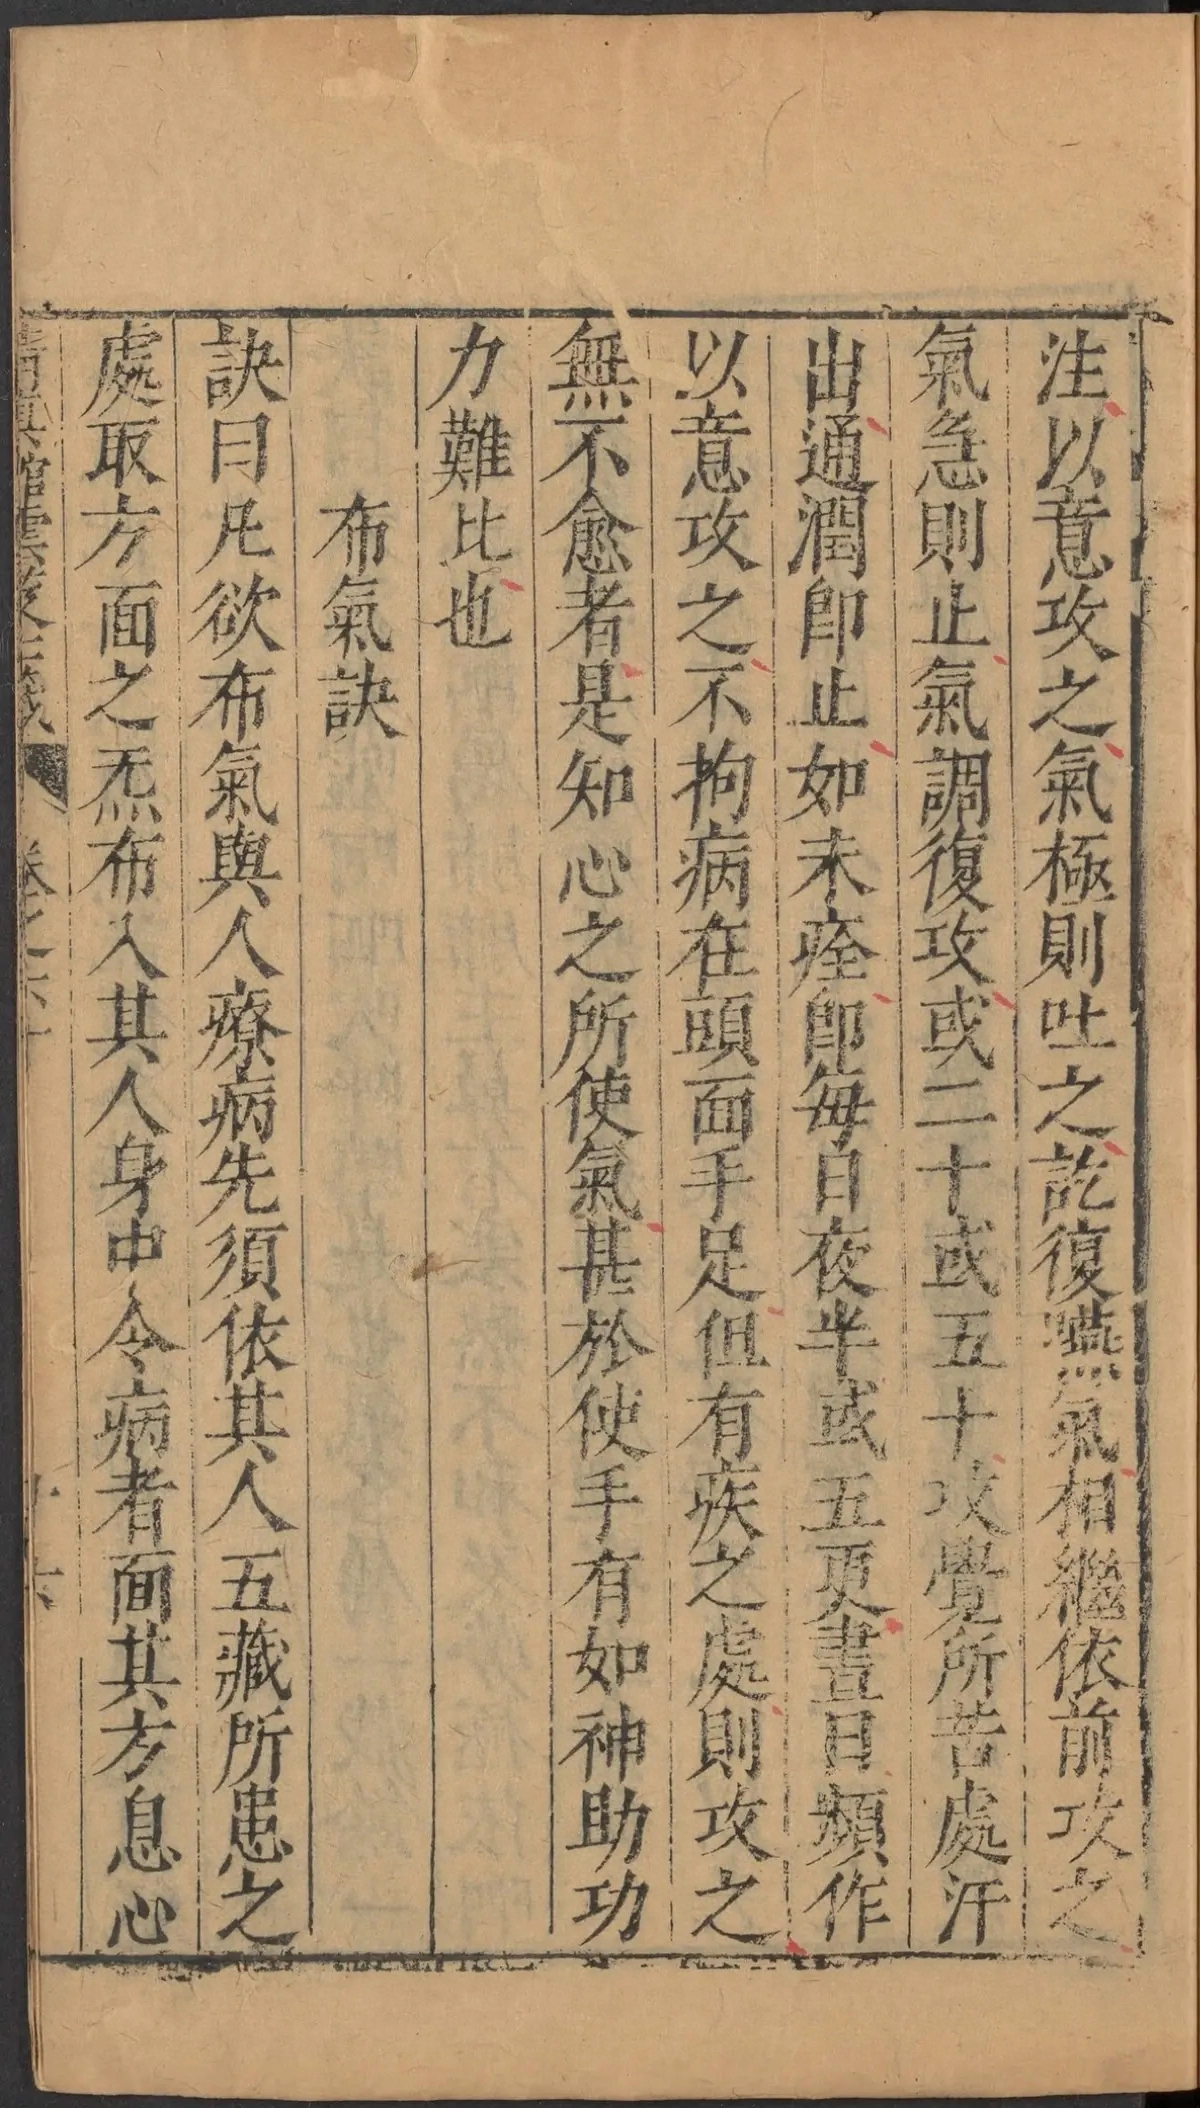 注以意攻之氣極則吐之訖復嚥氣相繼依前攻之
氣急則止氣調復攻或二十或五十攻覺所苦處汗
出通潤卽止如未痊卽每日夜半或五更晝日頻作
以意攻之不拘病在頭面手足但有疾之處則攻之
無不愈者是知心之所使氣甚於使手有如神助功
力難比也
布氣訣
訣曰凡欲布氣與人療病先須依其人五藏所患之
處取方面之炁布入其人身中令病者面其方息心